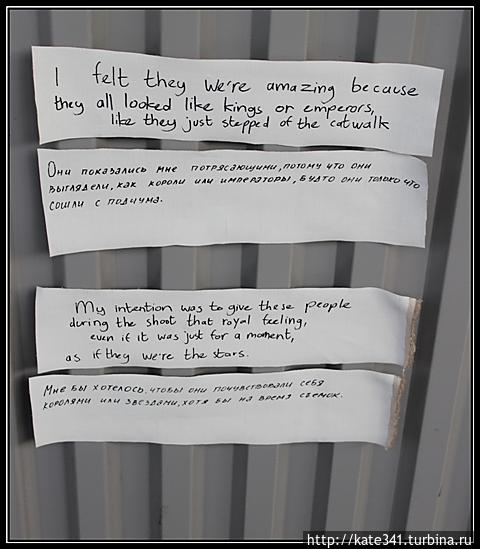 I felt they we're amazing because
they all looked like kings or emperors,
like they just stepped of the catwalk
Они показались мне потрясающими, потому что они
выглядели, как короли или императоры, будто они только что
сошли с подиума.
My intention was to give these people
during the shoot that royal feeling,
even if it was just for a moment,
as if they we're the stars.
Мне бы хотелось, чтобы они почувствовали себя
королями или звездами, хотя бы на время съемок.
http://kate341.turbina.ru